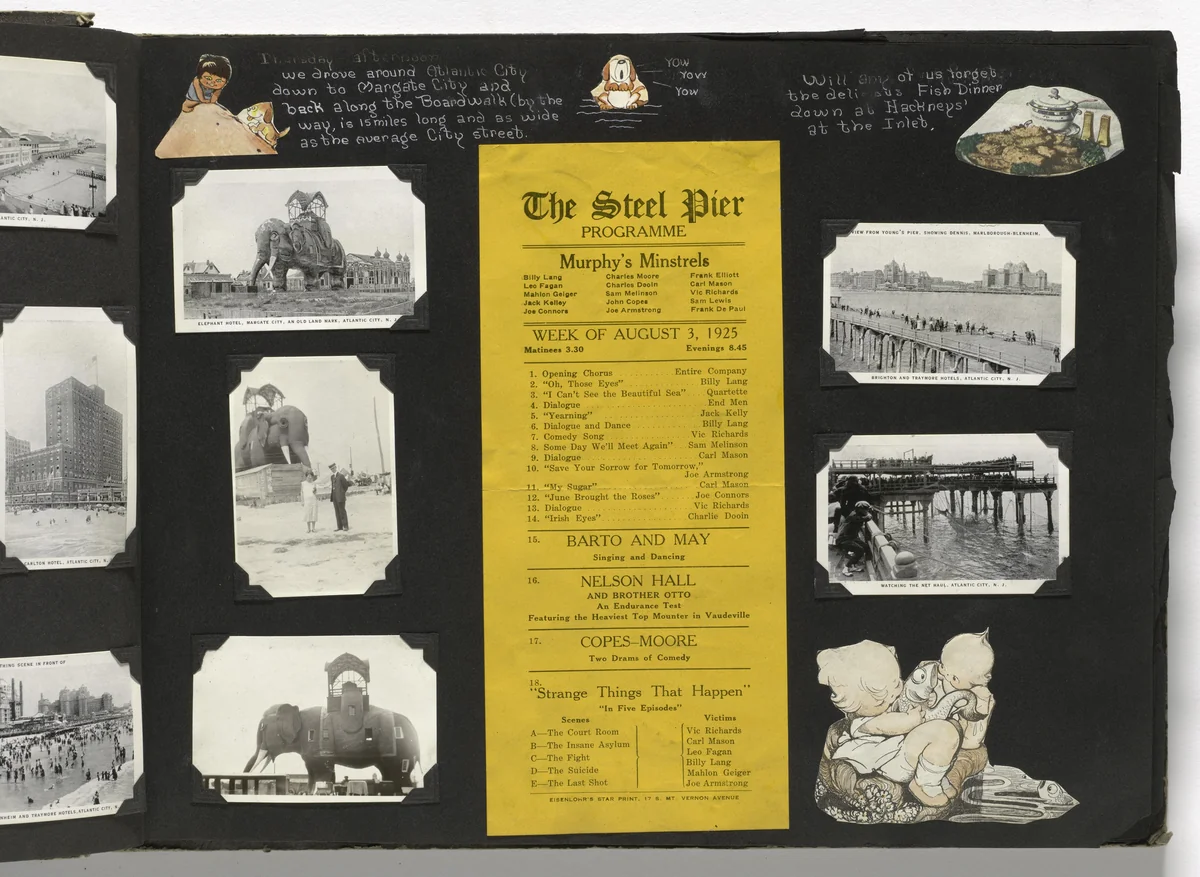 ATLANTIC CITY, N. J.
CARLTON HOTEL, ATLANTIC CITY, N.
THING SCENE IN FRONT OF
NHEIM AND TRAYMORE HOTELS, ATLANTIC CITY, N.
Thursday afternoon
we drove around Atlantic City
down to Margate City and
back along the Boardwalk (by the
way, is 15 miles long and as wide
as the average City street.
YOW
YOW
YOW
Will any of us forget
the delicious Fish Dinner
down at Hackneys'
at the Inlet.
ELEPHANT HOTEL, MARGATE CITY, AN OLD LAND MARK, ATLANTIC CITY, N. J.
The Steel Pier
PROGRAMME
Murphy's Minstrels
Billy Lang Charles Moore Frank Elliott
Leo Fagan Charles Dooin Carl Mason
Mahlon Geiger Sam Melinson Vic Richards
Jack Kelley John Copes Sam Lewis
Joe Connors Joe Armstrong Frank De Paul
WEEK OF AUGUST 3, 1925
Matinees 3.30 Evenings 8.45
1. Opening Chorus Entire Company
2. "Oh, Those Eyes" Billy Lang
3. "I Can't See the Beautiful Sea" Quartette
4. Dialogue End Men
5. "Yearning" Jack Kelly
6. Dialogue and Dance Billy Lang
7. Comedy Song Vic Richards
8. Some Day We'll Meet Again" Sam Melinson
9. Dialogue Carl Mason
10. "Save Your Sorrow for Tomorrow,"
Joe Armstrong
11. "My Sugar" Carl Mason
12. "June Brought the Roses" Joe Connors
13. Dialogue Vic Richards
14. "Irish Eyes" Charlie Dooin
15. BARTO AND MAY
Singing and Dancing
16. NELSON HALL
AND BROTHER OTTO
An Endurance Test
Featuring the Heaviest Top Mounter in Vaudeville
17. COPES–MOORE
Two Drams of Comedy
18.
"Strange Things That Happen"
"In Five Episodes"
Scenes Victims
A—The Court Room Vic Richards
B—The Insane Asylum Carl Mason
C—The Fight Leo Fagan
D—The Suicide Billy Lang
E—The Last Shot Mahlon Geiger
Joe Armstrong
EISENLOHR'S STAR PRINT, 17 S. MT. VERNON AVENUE
VIEW FROM YOUNG'S PIER, SHOWING DENNIS, MARLBOROUGH-BLENHEIM,
BRIGHTON AND TRAYMORE HOTELS, ATLANTIC CITY, N. J.
WATCHING THE NET HAUL, ATLANTIC CITY, N. J.